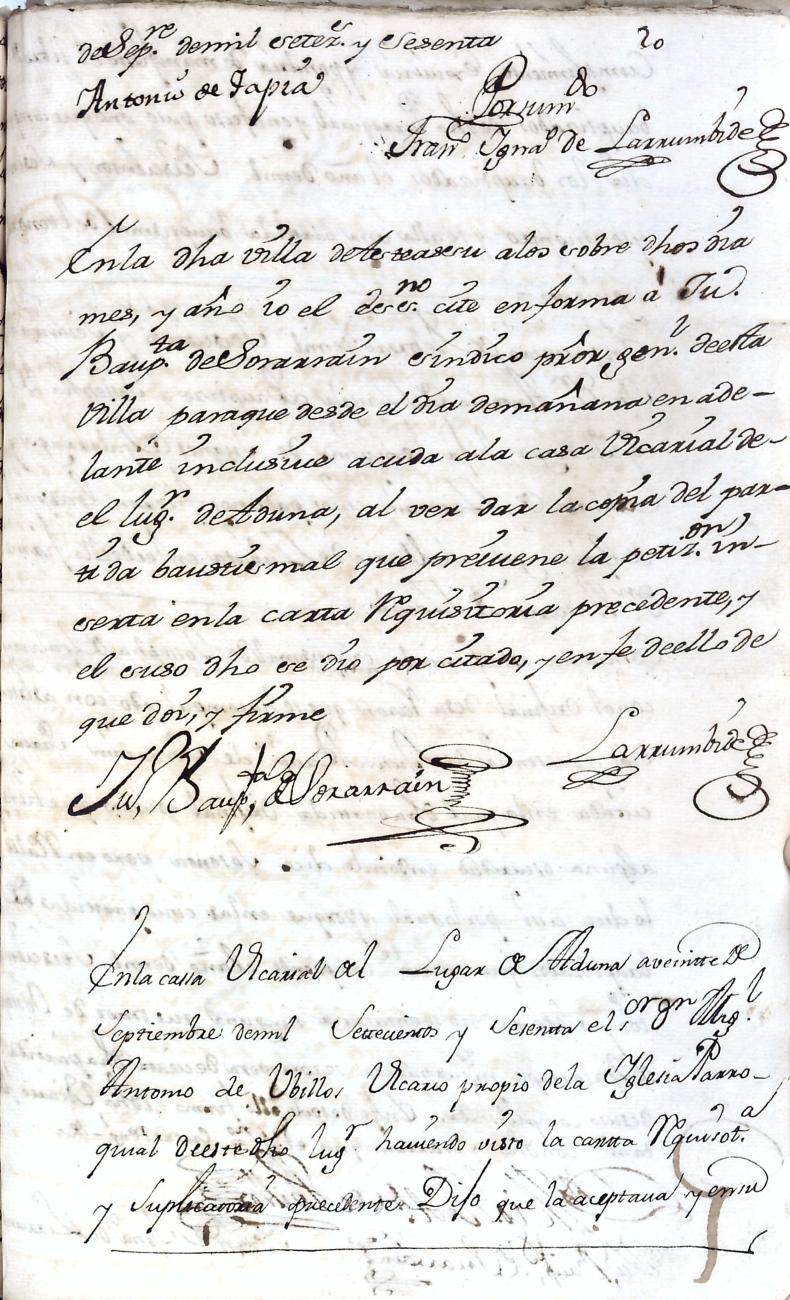 de Sep.re de mil setez.s y sesenta
20
Antonio de Tapia
Por su m.do
Fran.co Igna.o de Larrumbide
En la dha villa de Asteasu a los sobre dhos dia
mes, y año io el de es.no cite en forma a Ju.
Baup.ta de Sorarrain sindico prõr gen.l de esta
villa para que desde el dia de mañana en ade-
lante inclusive acuda a la casa Vicarial de-
el lug.r de Aduna, al ver dar la copia del par-
tida baustismal que previene la petiz.on in-
serta en la carta Requisitoria precedente, y
el suso dho se dio por citado, y en fe de ello de
que doi, y firme
Larrumbide
Ju, Baup,ta de Sorarrain
En la cassa Vicarial del Lugar de Aduna a veintte de
Septiembre de mil Settecientos y Sesentta el s.or dn Mig.l
Antonio de Vbillos Vicario propio de la Iglesia Parro-
quial de este dho lug.r haviendo visto la cartta Requisit.a
y Suplicatoria precedente Dijo que la aceptava y en su